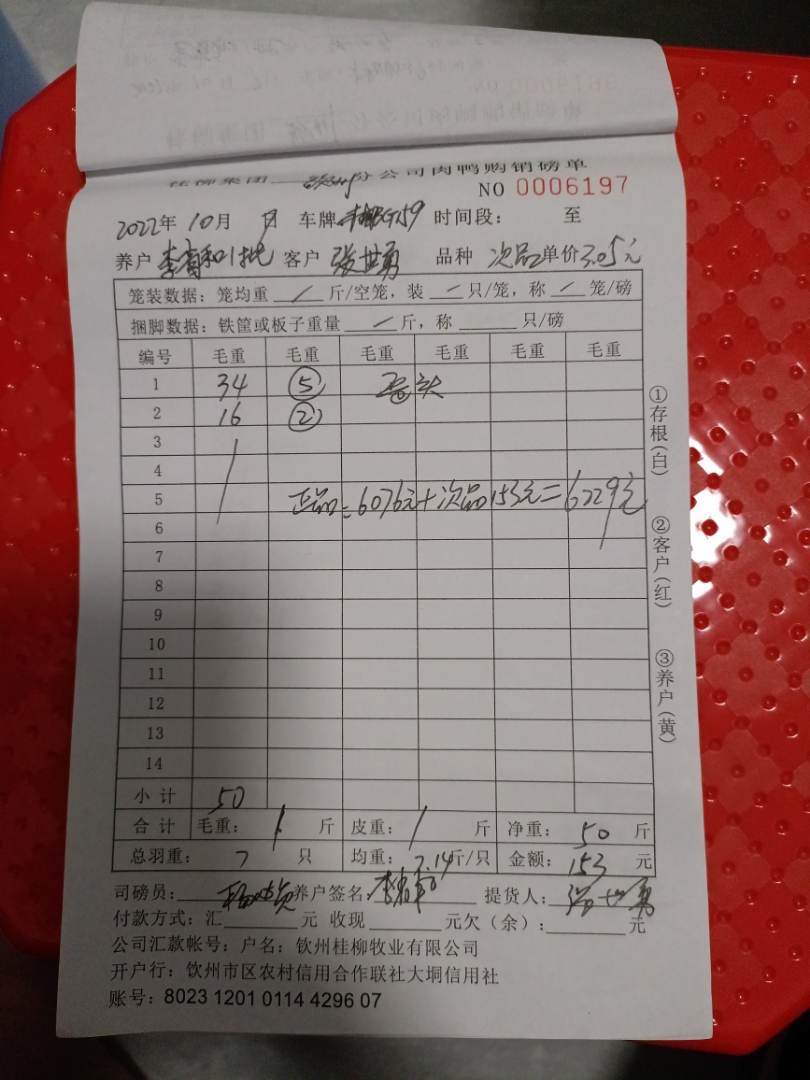 桂柳集团 钦州分公司肉鸭购销磅单
NO 0006197
2022年 10月 日 车牌 时间段： 至
养户 客户 张世勇 品种 次品 单价3.05元
笼装数据：笼均重 / 斤/空笼，装 / 只/笼，称 / 笼/磅
捆脚数据：铁筐或板子重量 / 斤，称 只/磅
编号 毛重 毛重 毛重 毛重 毛重 毛重
1 34 ⑤
2 16 ②
3
4
5 正品：6076元+次品153元=6229元
6
7
8
9
10
11
12
13
14
小计 50
合计 毛重： / 斤 皮重： / 斤 净重： 50 斤
总羽重： 7 只 均重： 7.14斤/只 金额： 153 元
司磅员： 养户签名： 提货人： 张世勇
付款方式：汇 元 收现 元欠（余）： 元
公司汇款帐号：户名：钦州桂柳牧业有限公司
开户行：钦州市区农村信用合作联社大垌信用社
账号：8023 1201 0114 4296 07
①存根（白）
②客户（红）
③养户（黄）